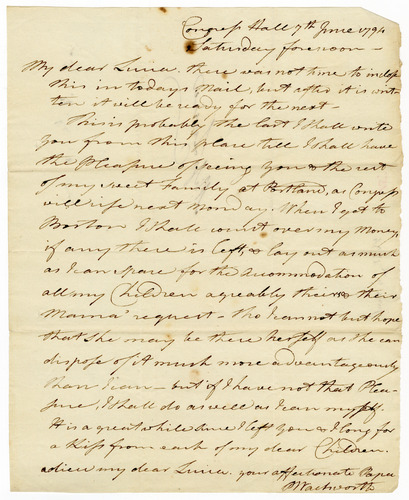 Congress Hall 7th June 1794
Saturday forenoon -
My dear Lucia. there was not time to inclose
this in todays Mail, but after it is writ-
ten it will be ready for the next -
This is probably the last I shall write
you from this place till I shall have
the Pleasure of seeing you & the rest
of my sweet Family at Portland, as Congress
will rise next Monday. When I get to
Boston I shall count over my Money,
if any there is left, & lay out as much
as I can spare for the Accommodation of
all my Children agreably their
Mama's request - tho I cannot but hope
that she may be there herself as she can
dispose of it much more advantageously
than I can - but if I have not that Plea-
sure, I shall do as well as I can myself.
It is a great while since I left you & I long for
a Kiss from each of my dear Children.
adieu my dear Lucia. your affectionate Papa
PWadsworth